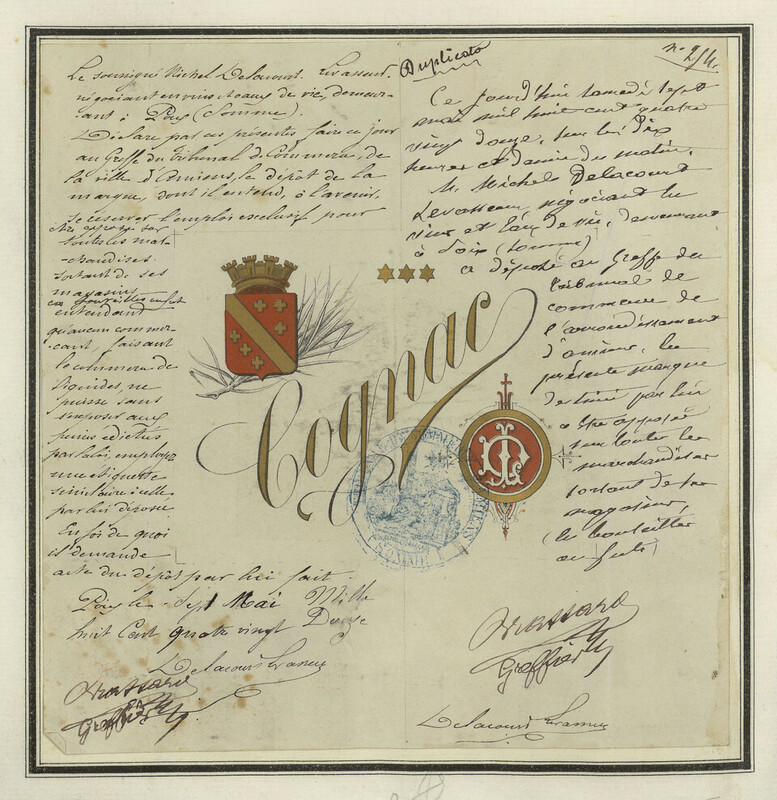 Duplicata
n° 254.
Le soussigné Michel Delacourt Levasseur,
négociant en vins et eaux de vie, demeur-
ant à Poix (Somme).
Déclare par ces présentes faire ce jour
au Greffe du Tribunal de Commerce, de
la ville d'Amiens, le dépôt de la
marque, dont il entend, à l'avenir,
se réserver l'emploi exclusif pour
être apposée sur
toutes les mar-
chandises
sortant de ses
magasins
en bouteilles ou fûts
entendant
qu'aucun commer-
cant, faisant
le commerce de
liquides, ne
puisse sans
s'exposer aux
peines édictées
par la loi, employer
une étiquette
similaire à celle
par lui déposée.
En foi de quoi
il demande
acte du dépôt par lui fait.
Poix le Sept Mai Mille
huit Cent quatre vingt Douze
Delacourt Levasseur
Greffier
Ce jourd'hui samedi sept
mai mil huit cent quatre
vingt douze, sur les dix
heures et demie du matin,
M. Michel Delacourt
Levasseur, négociant en
vins et eau de vie, demeurant
à Poix (Somme)
a déposé au Greffe du
tribunal de
commerce de
l'arrondissement
d'amiens, la
présente marque
destinée par lui
a être apposée
sur toutes les
marchandises
sortant de ses
magasins,
(en bouteilles
ou futs)
Greffier
Delacourt Levasseur
Cognac